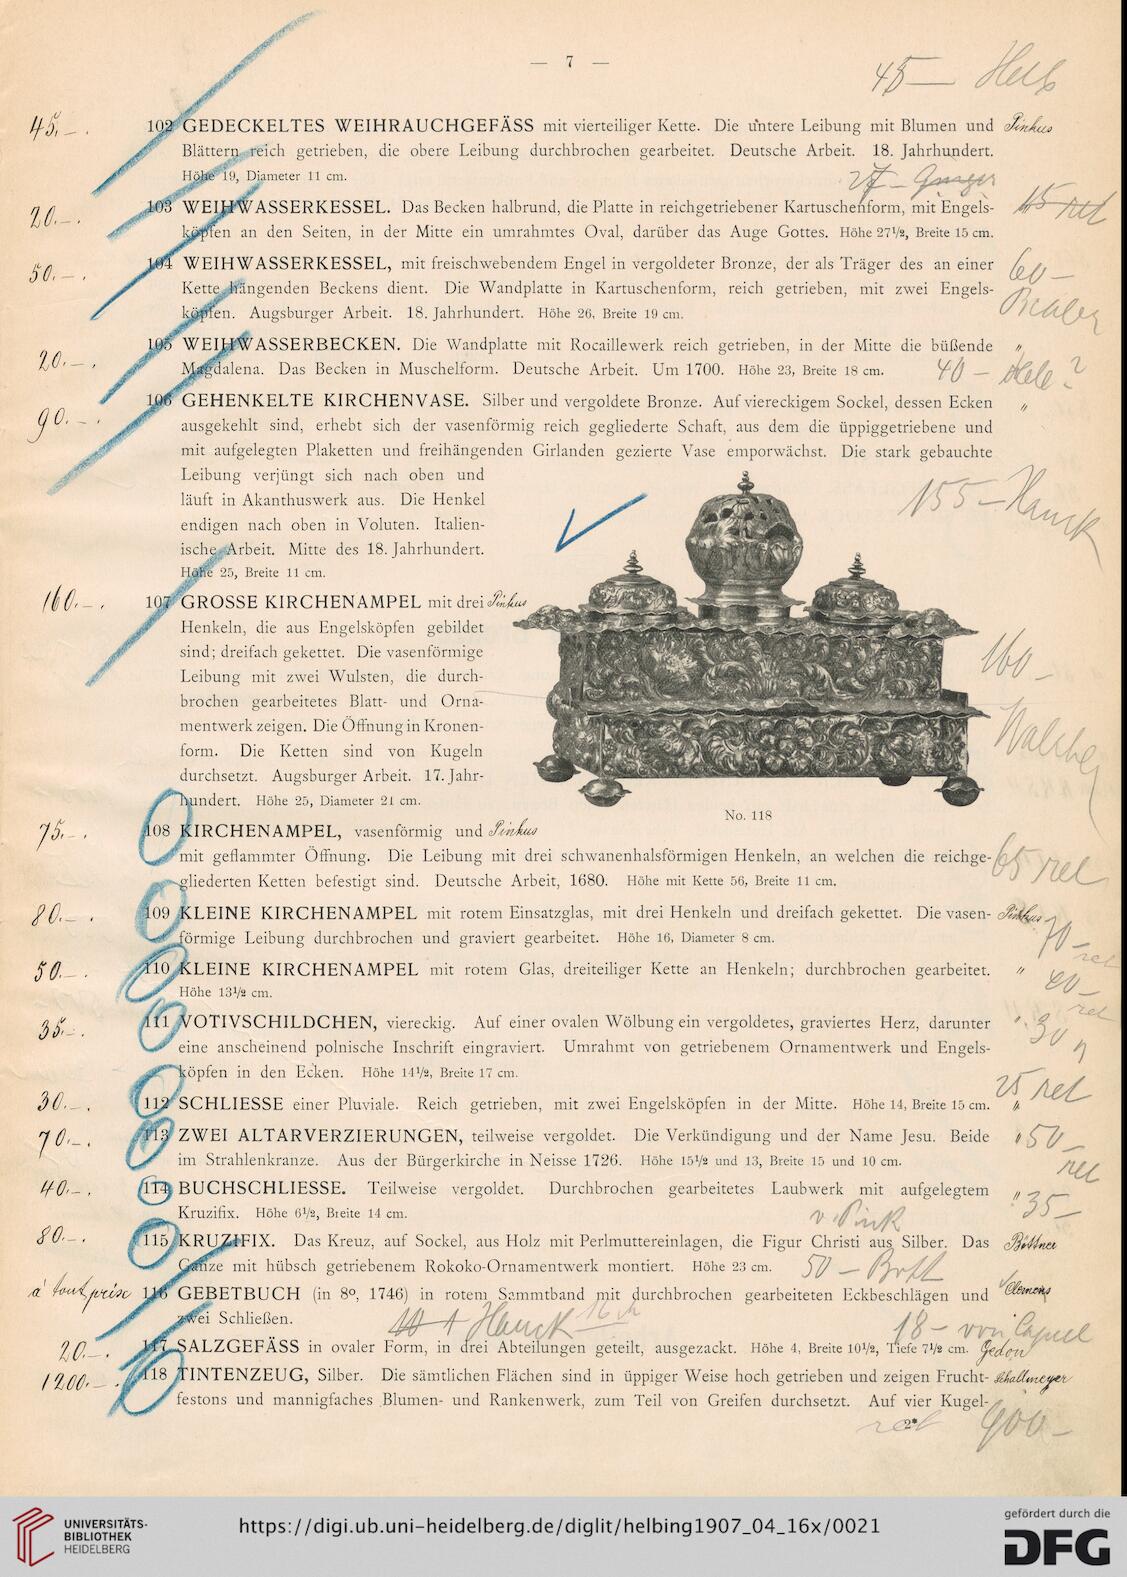 — 7 —
45— Helb
45.-.
102 GEDECKELTES WEIHRAUCHGEFÄSS mit vierteiliger Kette. Die untere Leibung mit Blumen und Pinkus
Blättern reich getrieben, die obere Leibung durchbrochen gearbeitet. Deutsche Arbeit. 18. Jahrhundert.
Höhe 19, Diameter 11 cm.
27 —
20.-.
103 WEIHWASSERKESSEL. Das Becken halbrund, die Platte in reichgetriebener Kartuschenform, mit Engels- „ 15 ret
köpfen an den Seiten, in der Mitte ein umrahmtes Oval, darüber das Auge Gottes. Höhe 27½, Breite 15 cm.
50.-.
104 WEIHWASSERKESSEL, mit freischwebendem Engel in vergoldeter Bronze, der als Träger des an einer 60—
Kette hängenden Beckens dient. Die Wandplatte in Kartuschenform, reich getrieben, mit zwei Engels-
köpfen. Augsburger Arbeit. 18. Jahrhundert. Höhe 26, Breite 19 cm.
20.-.
105 WEIHWASSERBECKEN. Die Wandplatte mit Rocaillewerk reich getrieben, in der Mitte die büßende „
Magdalena. Das Becken in Muschelform. Deutsche Arbeit. Um 1700. Höhe 23, Breite 18 cm. 40 —
90.-.
106 GEHENKELTE KIRCHENVASE. Silber und vergoldete Bronze. Auf viereckigem Sockel, dessen Ecken „
ausgekehlt sind, erhebt sich der vasenförmig reich gegliederte Schaft, aus dem die üppiggetriebene und
mit aufgelegten Plaketten und freihängenden Girlanden gezierte Vase emporwächst. Die stark gebauchte
Leibung verjüngt sich nach oben und
läuft in Akanthuswerk aus. Die Henkel
endigen nach oben in Voluten. Italien-
ische Arbeit. Mitte des 18. Jahrhundert.
Höhe 25, Breite 11 cm.
155 — Hauck
160.-.
107 GROSSE KIRCHENAMPEL mit drei Pinkus
Henkeln, die aus Engelsköpfen gebildet
sind; dreifach gekettet. Die vasenförmige
Leibung mit zwei Wulsten, die durch-
brochen gearbeitetes Blatt- und Orna-
mentwerk zeigen. Die Öffnung in Kronen-
form. Die Ketten sind von Kugeln
durchsetzt. Augsburger Arbeit. 17. Jahr-
hundert. Höhe 25, Diameter 21 cm.
160 —
No. 118
75.-.
108 KIRCHENAMPEL, vasenförmig und Pinkus
mit geflammter Öffnung. Die Leibung mit drei schwanenhalsförmigen Henkeln, an welchen die reichge- 65 ret
gliederten Ketten befestigt sind. Deutsche Arbeit, 1680. Höhe mit Kette 56, Breite 11 cm.
80.-.
109 KLEINE KIRCHENAMPEL mit rotem Einsatzglas, mit drei Henkeln und dreifach gekettet. Die vasen- Pinkus
förmige Leibung durchbrochen und graviert gearbeitet. Höhe 16, Diameter 8 cm. 70 — ret
50.-.
110 KLEINE KIRCHENAMPEL mit rotem Glas, dreiteiliger Kette an Henkeln; durchbrochen gearbeitet. „ 40 — ret
Höhe 13½ cm.
35.-.
111 VOTIVSCHILDCHEN, viereckig. Auf einer ovalen Wölbung ein vergoldetes, graviertes Herz, darunter „ 30
eine anscheinend polnische Inschrift eingraviert. Umrahmt von getriebenem Ornamentwerk und Engels-
köpfen in den Ecken. Höhe 14½, Breite 17 cm.
30.-.
112 SCHLIESSE einer Pluviale. Reich getrieben, mit zwei Engelsköpfen in der Mitte. Höhe 14, Breite 15 cm. „ 25 ret
70.-.
113 ZWEI ALTARVERZIERUNGEN, teilweise vergoldet. Die Verkündigung und der Name Jesu. Beide „ 50 —
im Strahlenkranze. Aus der Bürgerkirche in Neisse 1726. Höhe 15½ und 13, Breite 15 und 10 cm. ret
40.-.
114 BUCHSCHLIESSE. Teilweise vergoldet. Durchbrochen gearbeitetes Laubwerk mit aufgelegtem „ 35 —
Kruzifix. Höhe 6½, Breite 14 cm.
80.-.
115 KRUZIFIX. Das Kreuz, auf Sockel, aus Holz mit Perlmuttereinlagen, die Figur Christi aus Silber. Das Böttner
Ganze mit hübsch getriebenem Rokoko-Ornamentwerk montiert. Höhe 23 cm. 50 —
à tout prix
116 GEBETBUCH (in 8°, 1746) in rotem Sammtband mit durchbrochen gearbeiteten Eckbeschlägen und Clemens
zwei Schließen. Hauck 18 —
20.-.
117 SALZGEFÄSS in ovaler Form, in drei Abteilungen geteilt, ausgezackt. Höhe 4, Breite 10½, Tiefe 7½ cm. Gedon
1200.-.
118 TINTENZEUG, Silber. Die sämtlichen Flächen sind in üppiger Weise hoch getrieben und zeigen Frucht- Schallmeyer
festons und mannigfaches Blumen- und Rankenwerk, zum Teil von Greifen durchsetzt. Auf vier Kugel-
ret 2* 900 —
UNIVERSITÄTS-
BIBLIOTHEK
HEIDELBERG
https://digi.ub.uni-heidelberg.de/diglit/helbing1907_04_16x/0021
gefördert durch die
DFG